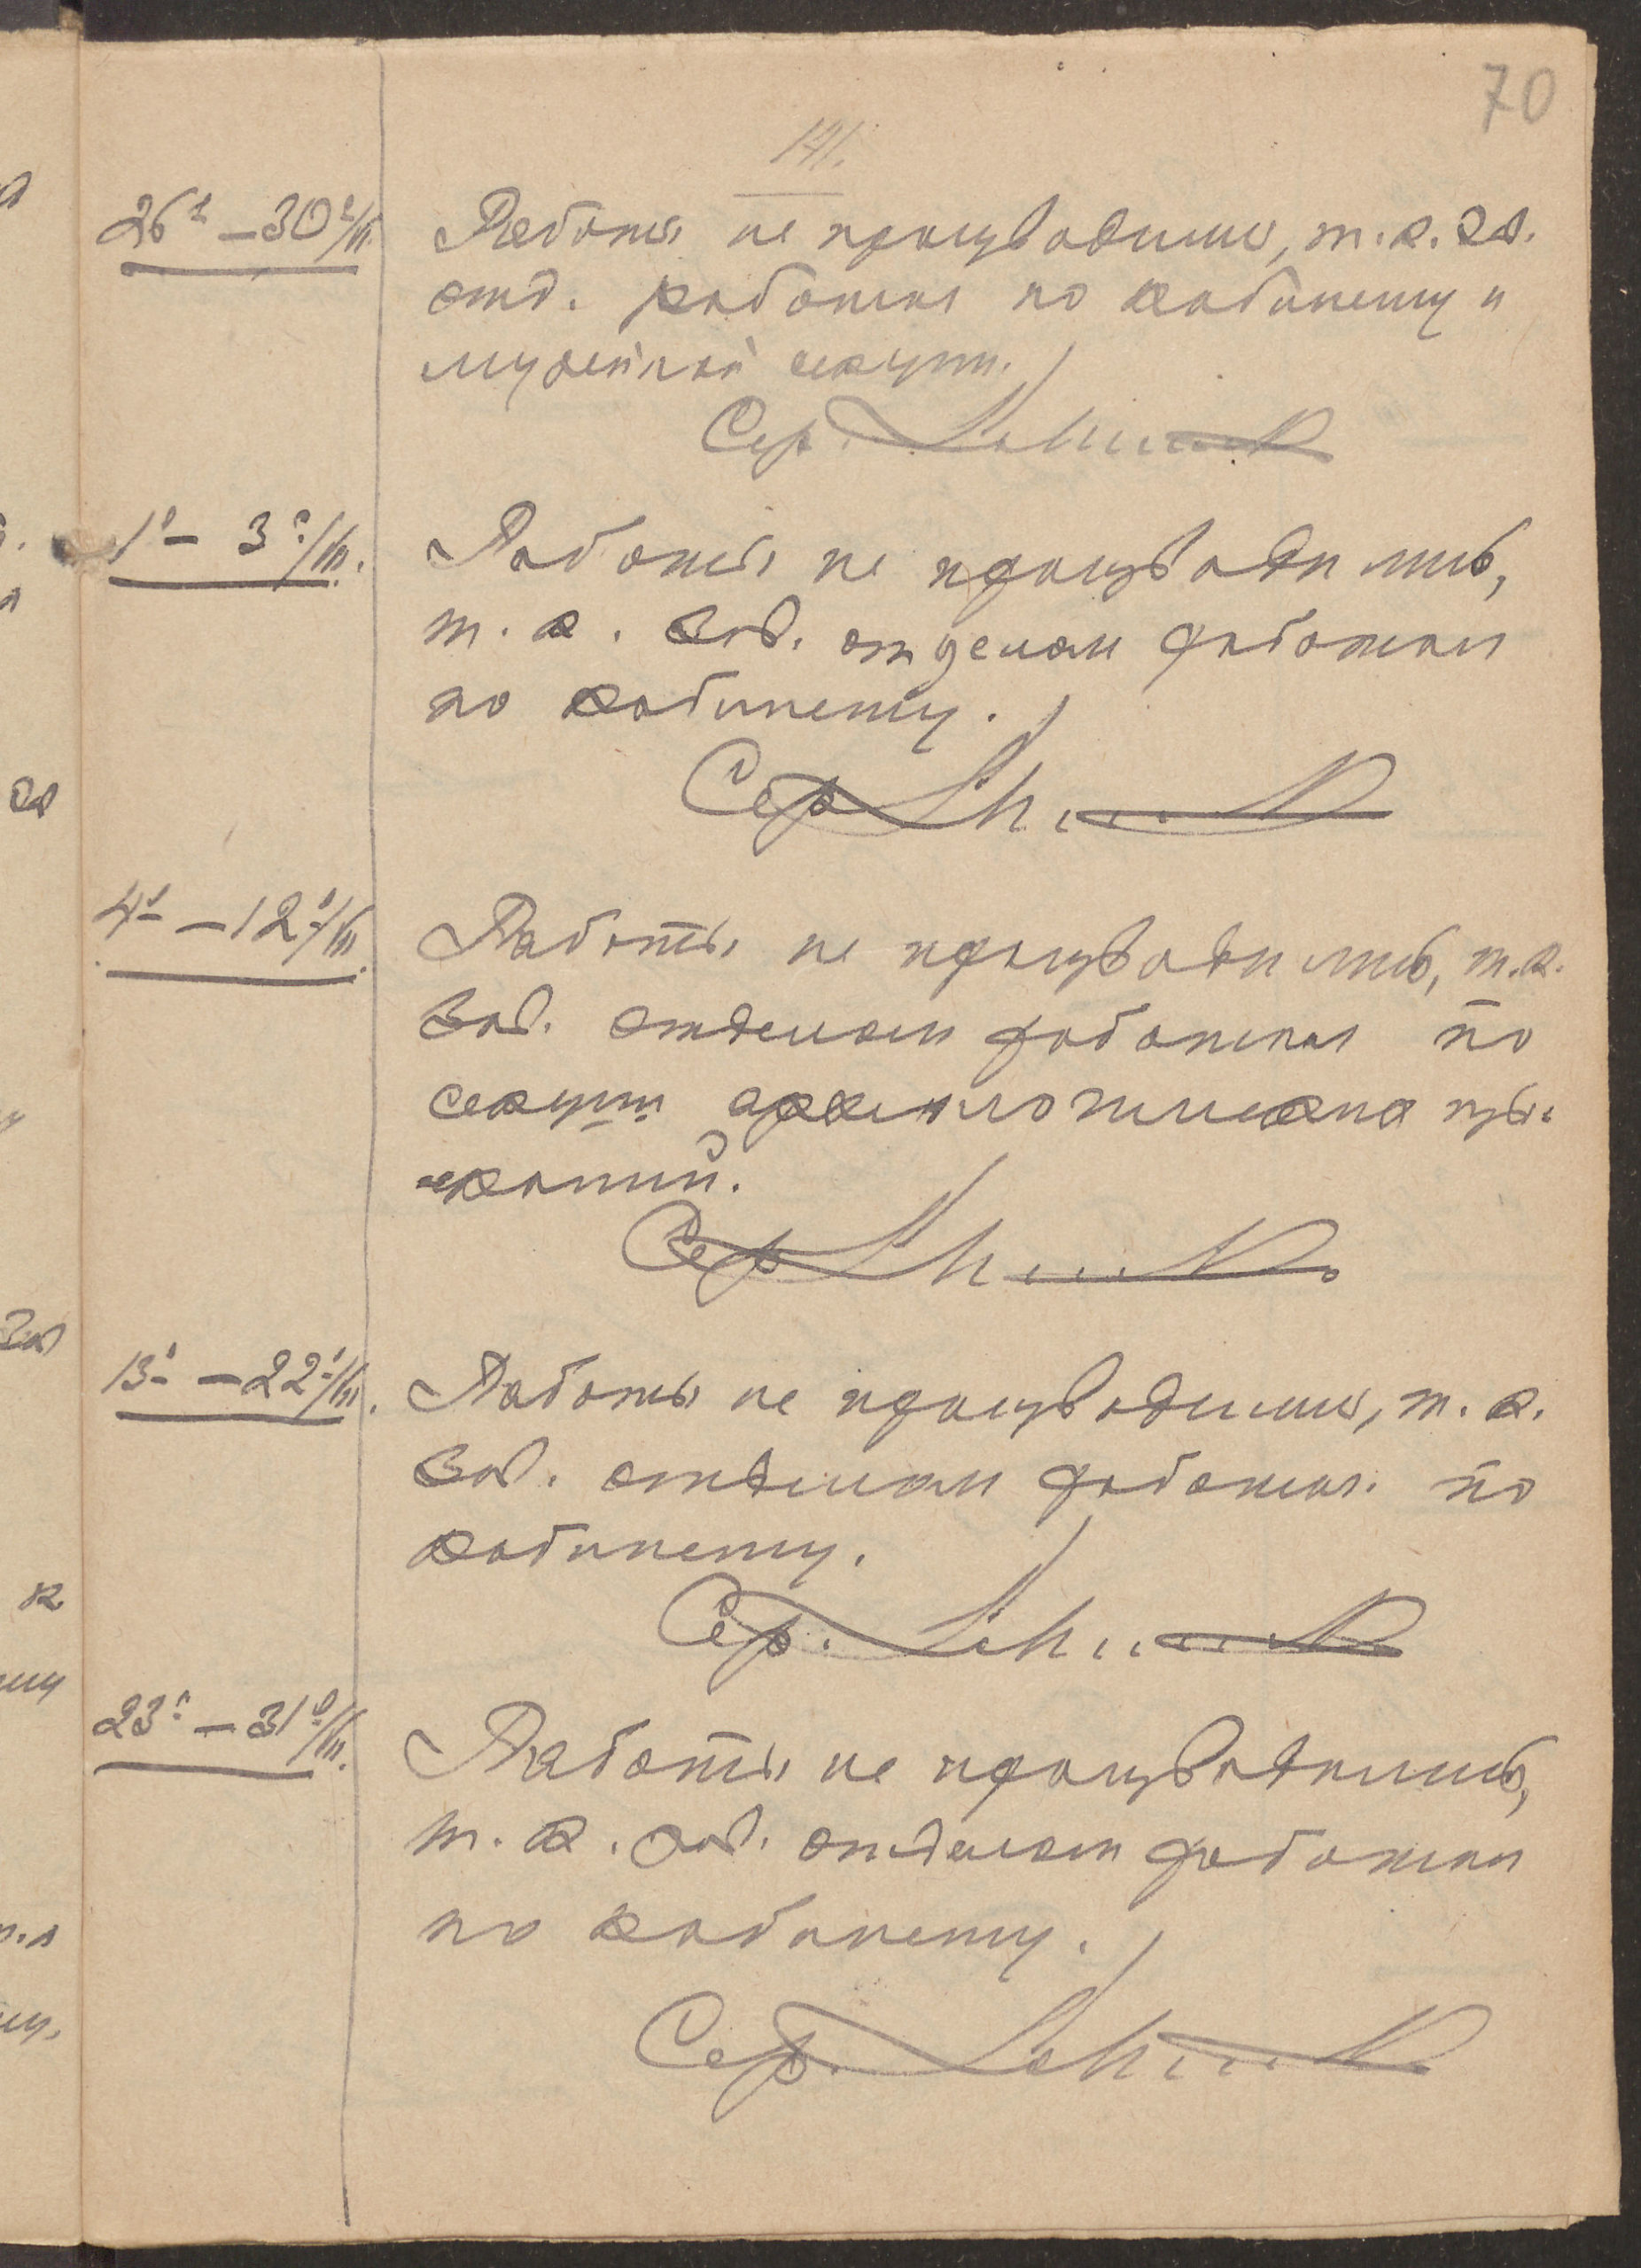 70
141.
26 – 30/III. Работы не производились, т. к. зав.
отд. работал по кабинету и
музейной секции.
Сер.
1 – 3/III. Работы не производились,
т. к. зав. отделом работал
по кабинету.
Сер
4 – 12/III. Работы не производились, т. к.
Зав. отделом работал по
секции археологических изы-
сканий.
Сер
13 – 22/III. Работы не производились, т. к.
Зав. отделом работал по
кабинету.
Сер.
23 – 31/III. Работы не производились,
т. к. зав. отделом работал
по кабинету.
Сер.